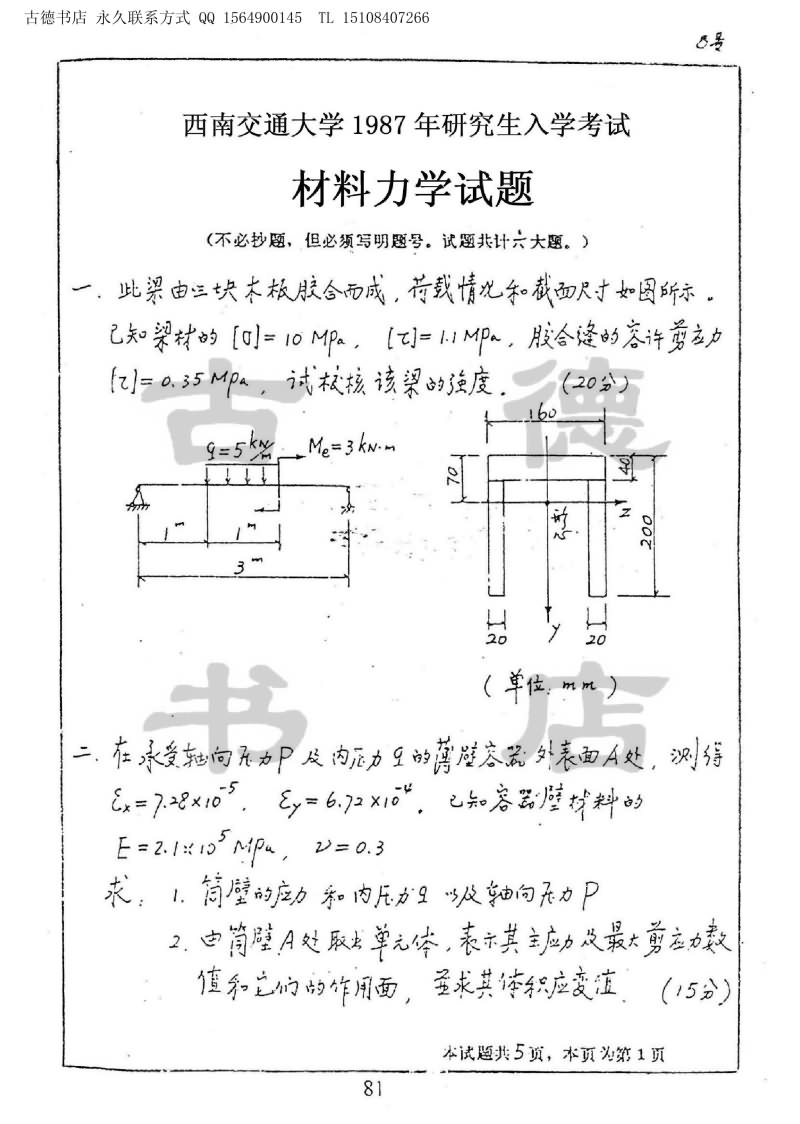 古德书店 永久联系方式 QQ 1564900145 TL 15108407266
B号
西南交通大学 1987 年研究生入学考试
材料力学试题
（不必抄题，但必须写明题号。试题共计六大题。）
一．此梁由三块木板胶合而成，荷载情况和截面尺寸如图所示。
已知梁材的 [σ]= 10 MPa， [τ]= 1.1 MPa，胶合缝的容许剪应力
[τ]= 0.35 MPa，试校核该梁的强度． （20分）
q=5 kN/m
Me=3 kN·m
1 m
1 m
3 m
160
70
40
形心
z
200
20
y
20
（单位：mm）
二．在承受轴向压力P及内压力q的薄壁容器外表面A处，测得
εx=7.28×10⁻⁵， εy=6.72×10⁻⁴．已知容器壁材料的
E=2.1×10⁵ MPa， ν=0.3
求：1．筒壁的应力和内压力q以及轴向压力P
2．由筒壁A处取出单元体，表示其主应力及最大剪应力数
值和它们的作用面，并求其体积应变值． （15分）
本试题共5页，本页为第1页
81
古德
书店